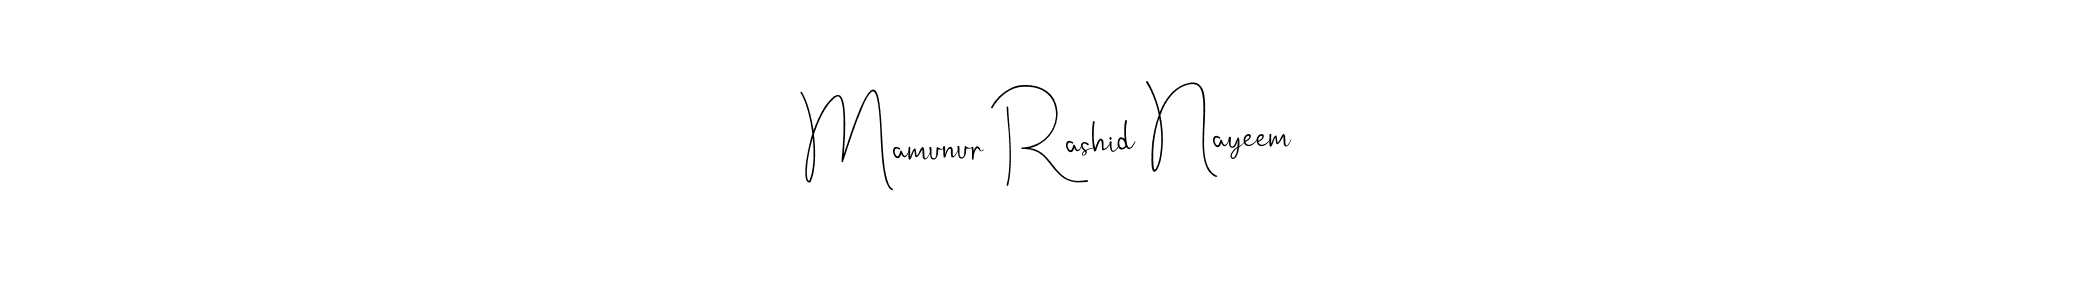 Mamunur Rashid Nayeem